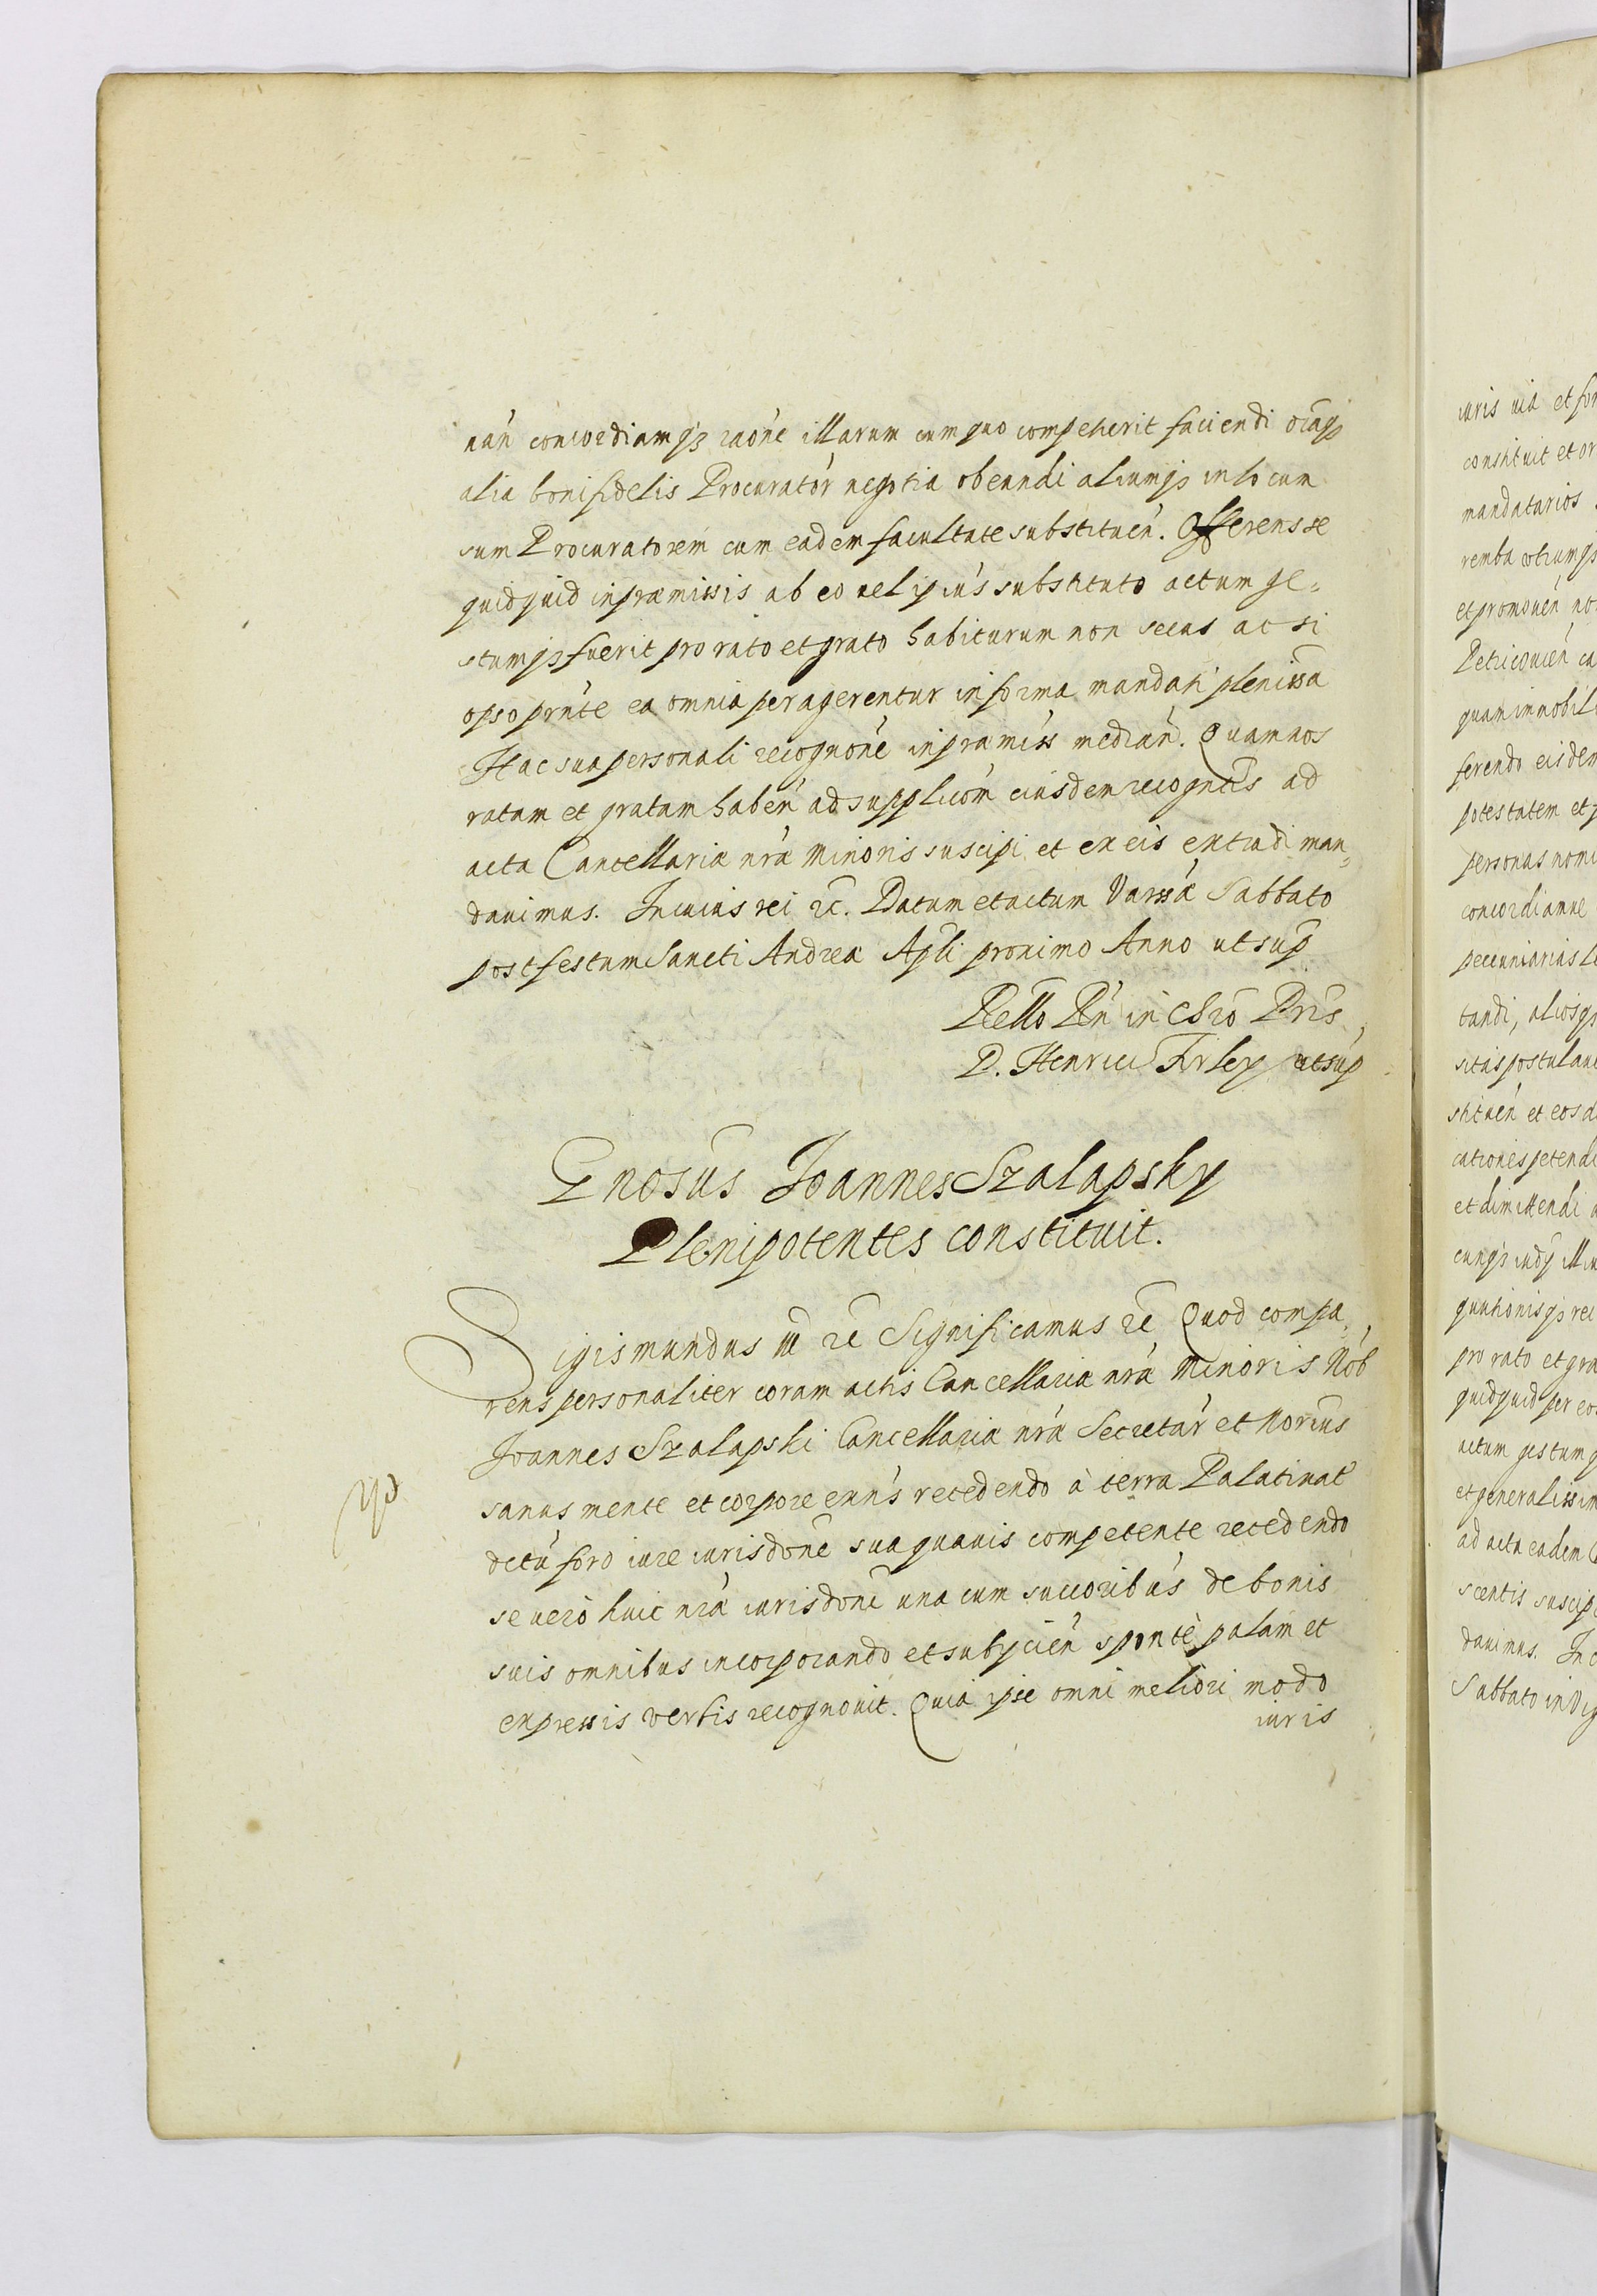 nan̄ concordiamqȝ raōne illarum cum quo competierit faciendi oīaqȝ
alia boni fidelis Procurator̄ negotia obeundi aliumqȝ in locum
suum Procuratorem cum eadem facultate substituen̄. Offerens se
quidquid in præmissis ab eo uel ipsius substituto actum ge=
stumqȝ fuerit pro rato et grato habiturum non secus ac si
opso pn̄te ea omnia peragerentur in forma mandati plenissa
Hac sua personali recognone in præmiss median̄. Quam nos
ratam et gratam haben̄ ad supplicōm eiusdem recogntis ad
acta Cancellariæ nr̄æ Minoris suscipi et ex eis extradi man=
dauimus. In cuius rei ꝛc. Datum et actum Varssæ Sabbato
post festum Sancti Andreæ Apli proximo Anno ut sup
Rello Rn̄ in Chro Pris
D. Henrici Firley ut sup
Gnosus Joannes Szalapsky
Plenipotentes constituit.
Sigismundus III ꝛc Significamus ꝛc Quod compa=
rens personaliter coram actis Cancellariæ nr̄æ Minoris Nob
Joannes Szalapski Cancellariæ nr̄æ Secretar̄ et Norius
sanus mente et corpore exn̄s recedendo à terra Palatinat
dctu foro iure iurisdone sua quauis competente recedendo
se uero huic nr̄æ iurisdoni una cum succoribus de bonis
suis omnibus incorporando et subijcien̄ sponte palam et
expressis verbis recognouit. Quia ipse omni meliori modo
iuris
iuris uia et for
constituit et or
mandatarios
remba
et promouen̄ no
Petricouien̄ ca
quam in nobili
ferendo eisdem
potestatem et p
personas nomi
concordiamue
pecuniarias
tandi, aliosqȝ
sitis postulan
stituen̄ et eosd
cationes petendi
et dimittendi a
cunqȝ
rei
pro rato et gra
quidquid per eos
actum gestumq
et generalissim
ad acta eadem
scentis suscipi
dauimus. In c
Sabbato in Vig